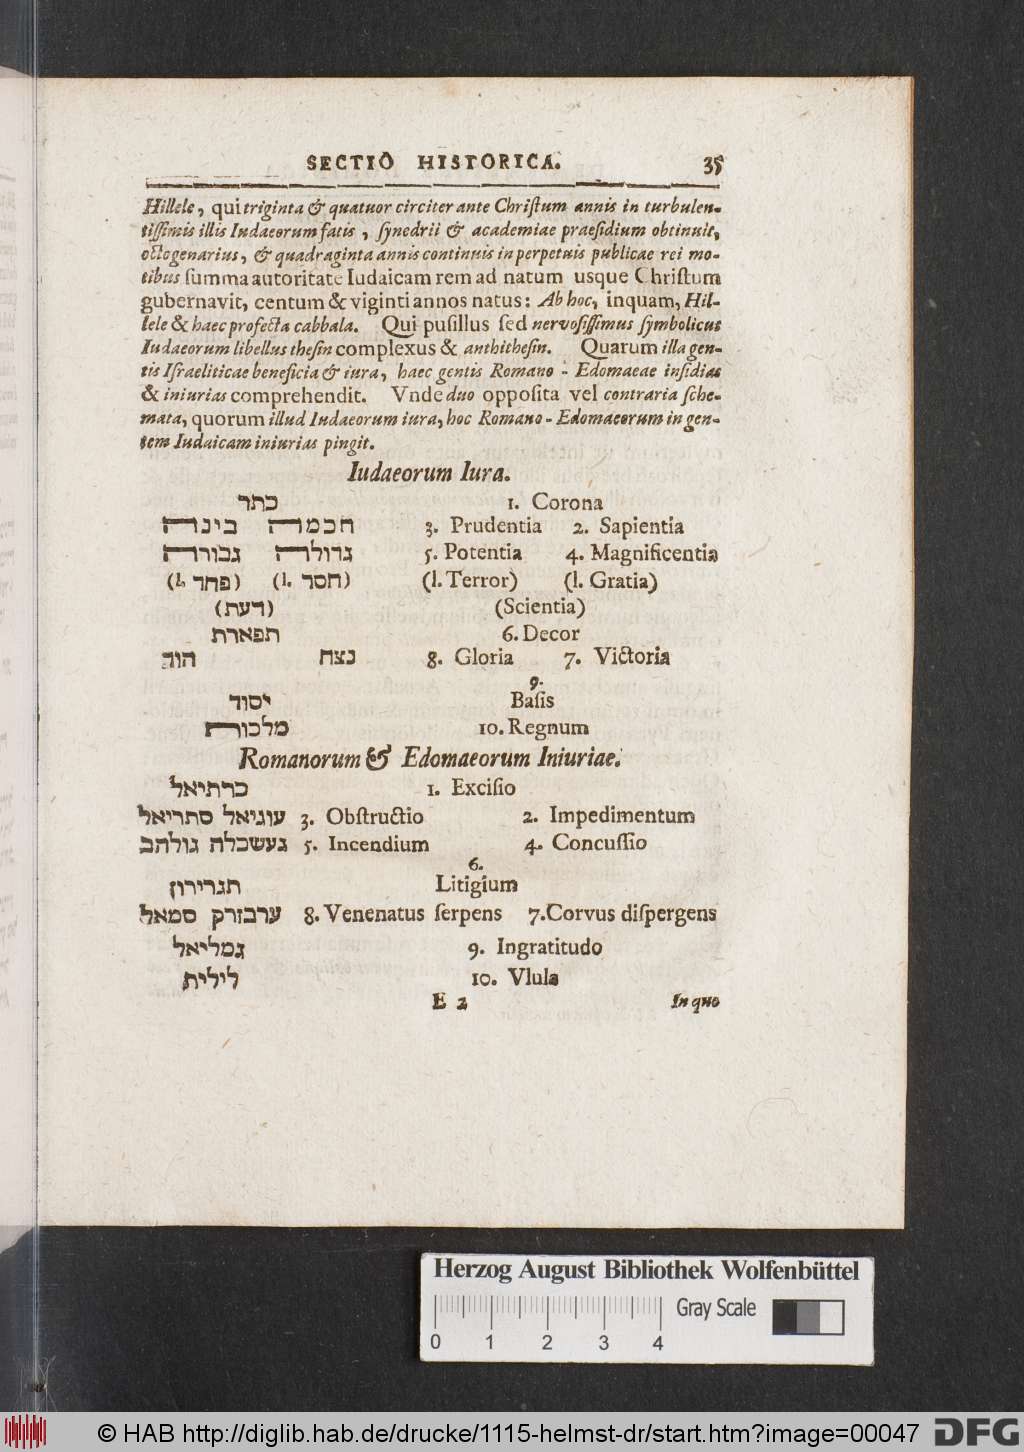 SECTIO HISTORICA. 35
Hillele, qui triginta & quatuor circiter ante Chriſtum annis in turbulen-
tiſſimis illis Iudaeorum fatis, ſynedrii & academiae praeſidium obtinuit,
octogenarius, & quadraginta annis continuis in perpetuis publicae rei mo-
tibus ſumma autoritate Iudaicam rem ad natum usque Chriſtum
gubernavit, centum & viginti annos natus: Ab hoc, inquam, Hil-
lele & haec profecta cabbala. Qui puſillus ſed nervoſiſſimus ſymbolicus
Iudaeorum libellus theſin complexus & anthitheſin. Quarum illa gen-
tis Iſraeliticae beneficia & iura, haec gentis Romano - Edomaeae inſidias
& iniurias comprehendit. Vnde duo oppoſita vel contraria ſche-
mata, quorum illud Iudaeorum iura, hoc Romano - Edomaeorum in gen-
tem Iudaicam iniurias pingit.
Iudaeorum Iura.
כתר 1. Corona
חכמה בינה 3. Prudentia 2. Sapientia
גדולה גבורה 5. Potentia 4. Magnificentia
(חסר .l) (פחד .l) (l. Terror) (l. Gratia)
(דעת) (Scientia)
תפארת 6. Decor
נצח הוד 8. Gloria 7. Victoria
9.
יסוד Baſis
מלכות 10. Regnum
Romanorum & Edomaeorum Iniuriae.
כרתיאל 1. Exciſio
עוגיאל סתריאל 3. Obſtructio 2. Impedimentum
געשכלה גולהב 5. Incendium 4. Concuſſio
6.
תגרירון Litigium
ערבזרק סמאל 8. Venenatus ſerpens 7. Corvus diſpergens
גמליאל 9. Ingratitudo
לילית 10. Vlula
E 2 In quo
Herzog August Bibliothek Wolfenbüttel
Gray Scale
0 1 2 3 4
© HAB http://diglib.hab.de/drucke/1115-helmst-dr/start.htm?image=00047 DFG